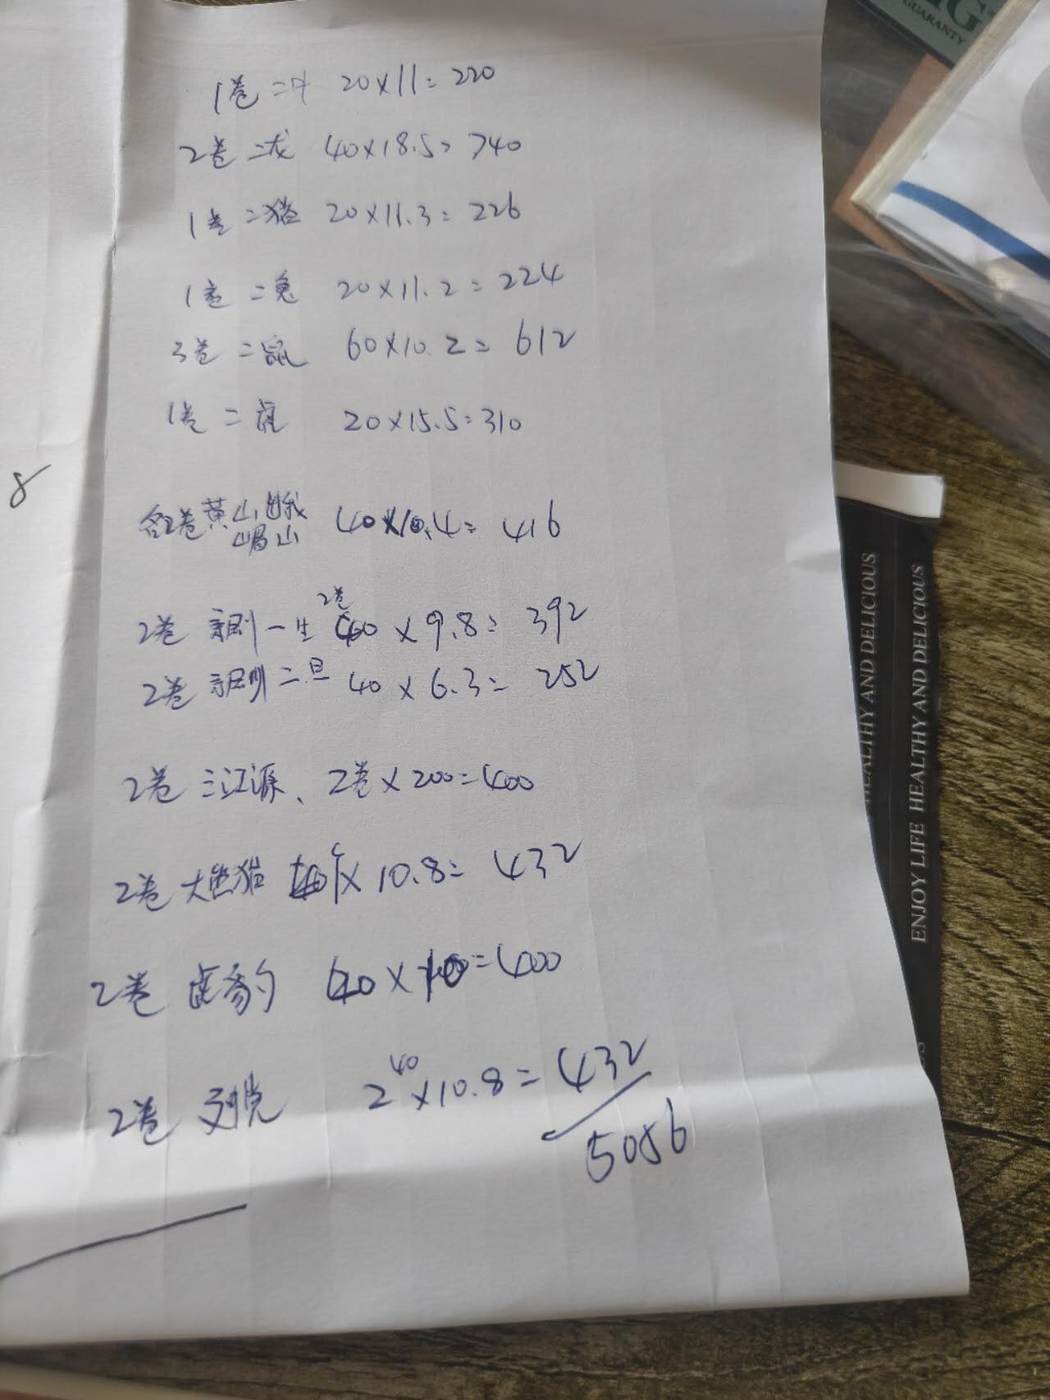 1卷二牛 20×11=220
2卷二龙 40×18.5=740
1卷二猪 20×11.3=226
1卷二兔 20×11.2=224
3卷二鼠 60×10.2=612
1卷二虎 20×15.5=310
各2卷黄山峨
嵋山 40×10.4=416
2卷 京剧一生 2卷 40×9.8=392
2卷 京剧二旦 40×6.3=252
2卷三江源、2卷×200=400
2卷大熊猫 ×10.8=432
2卷虎豹 40×10=400
2卷 2 40 ×10.8=432
5056
8
GUARANTY
HEALTHY AND DELICIOUS
ENJOY LIFE HEALTHY AND DELICIOUS